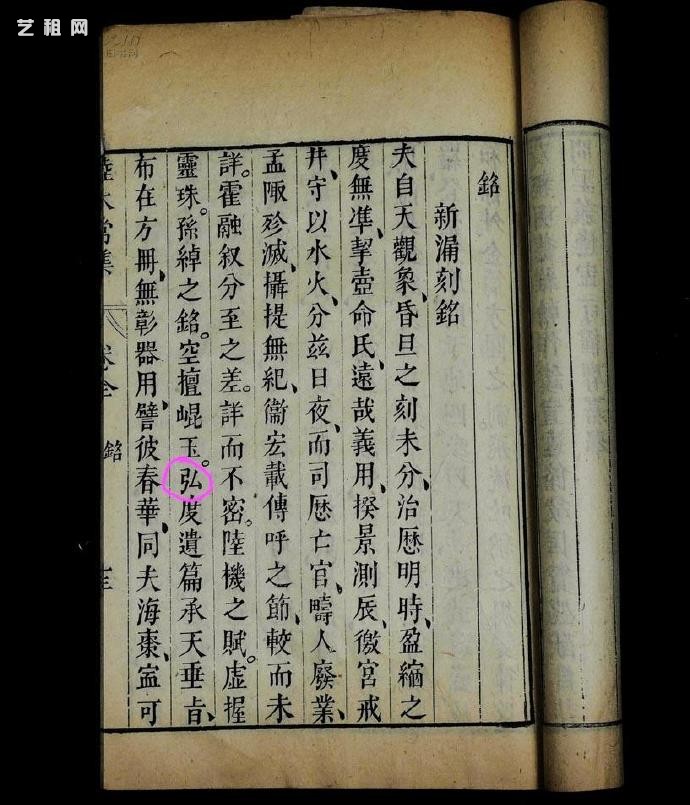 艺租网
銘
新漏刻銘
夫自天觀象、昏旦之刻未分、治厯明時、盈縮之
度無凖、挈壺命氏、遠哉義用、揆景測辰、徼宮戒
井、守以水火、分兹日夜、而司厯亡官、疇人廢業、
孟陬殄滅、攝提無紀、衞宏載傳呼之節、較而未
詳。霍融叙分至之差。詳而不密。陸機之賦。虛握
靈珠。孫綽之銘。空擅崐玉。弘度遺篇承天垂旨、
布在方冊、無彰器用、譬彼春華、同夫海棗、寍可
陸太常集 卷全 銘